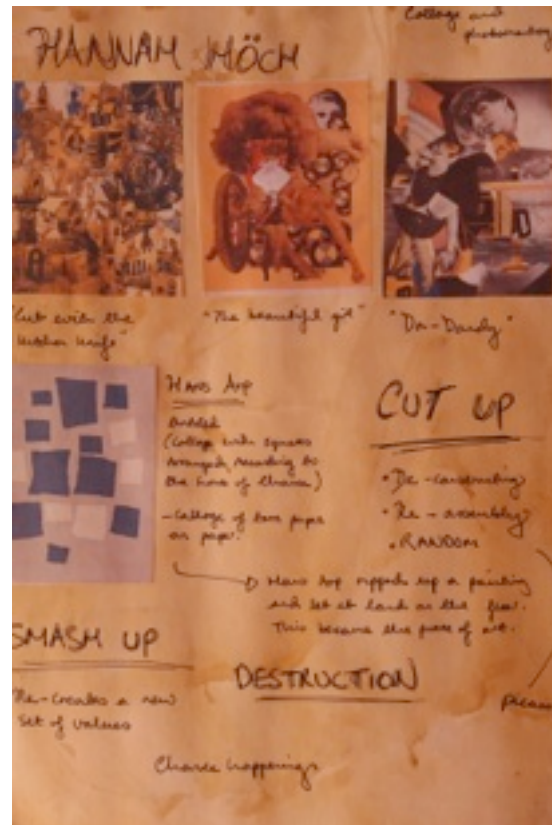 Collage and
HANNAH HÖCH
"Cut with the
kitchen knife"
"The beautiful girl"
"Da-Dandy"
Hans Arp
untitled
(Collage with squares
arranged according to
the laws of Chance)
- Collage of torn paper
on paper.
CUT UP
• De-constructing
• Re-assembly
• RANDOM
Hans Arp ripped up a painting
and let it land on the floor.
This became the piece of art.
SMASH UP
Re-creates a new
set of values
DESTRUCTION
Chance happenings